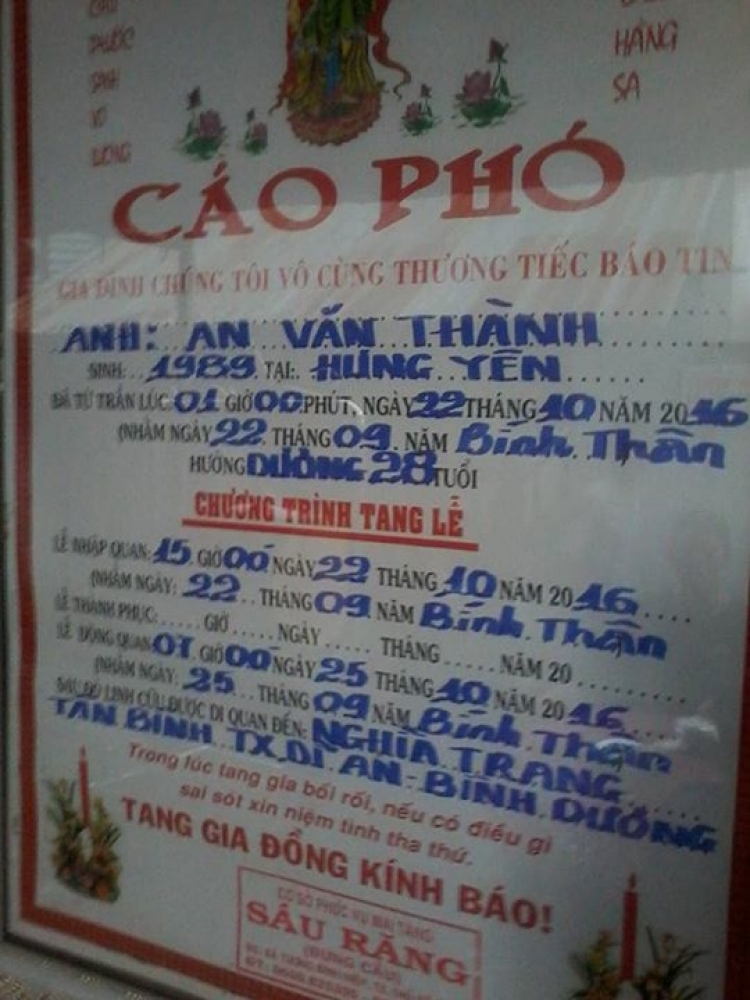 PHƯỚC
VÔ
LƯỢNG
HẰNG
SA
CÁO PHÓ
GIA ĐÌNH CHÚNG TÔI VÔ CÙNG THƯƠNG TIẾC BÁO TIN
ANH: AN VĂN THÀNH
SINH: 1989 TẠI: HƯNG YÊN
ĐÃ TỪ TRẦN LÚC 01 GIỜ 00 PHÚT, NGÀY 22 THÁNG 10 NĂM 2016
(NHẰM NGÀY 22 THÁNG 09 NĂM Bính Thân
HƯỞNG DƯƠNG 28 TUỔI
CHƯƠNG TRÌNH TANG LỄ
LỄ NHẬP QUAN: 15 GIỜ 00 NGÀY 22 THÁNG 10 NĂM 2016
(NHẰM NGÀY: 22 THÁNG 09 NĂM Bính Thân
LỄ THÀNH PHỤC: ...... GIỜ ..... NGÀY ..... THÁNG ...... NĂM 20 .........
LỄ ĐỘNG QUAN 07 GIỜ 00 NGÀY 25 THÁNG 10 NĂM 2016
(NHẰM NGÀY: 25 THÁNG 09 NĂM Bính Thân
SAU ĐÓ LINH CỬU ĐƯỢC DI QUAN ĐẾN: NGHĨA TRANG
TÂN BÌNH TX.DĨ AN - BÌNH DƯƠNG
Trong lúc tang gia bối rối, nếu có điều gì
sai sót xin niệm tình tha thứ.
TANG GIA ĐỒNG KÍNH BÁO!
CƠ SỞ PHỤC VỤ MAI TÁNG
SÁU RĂNG